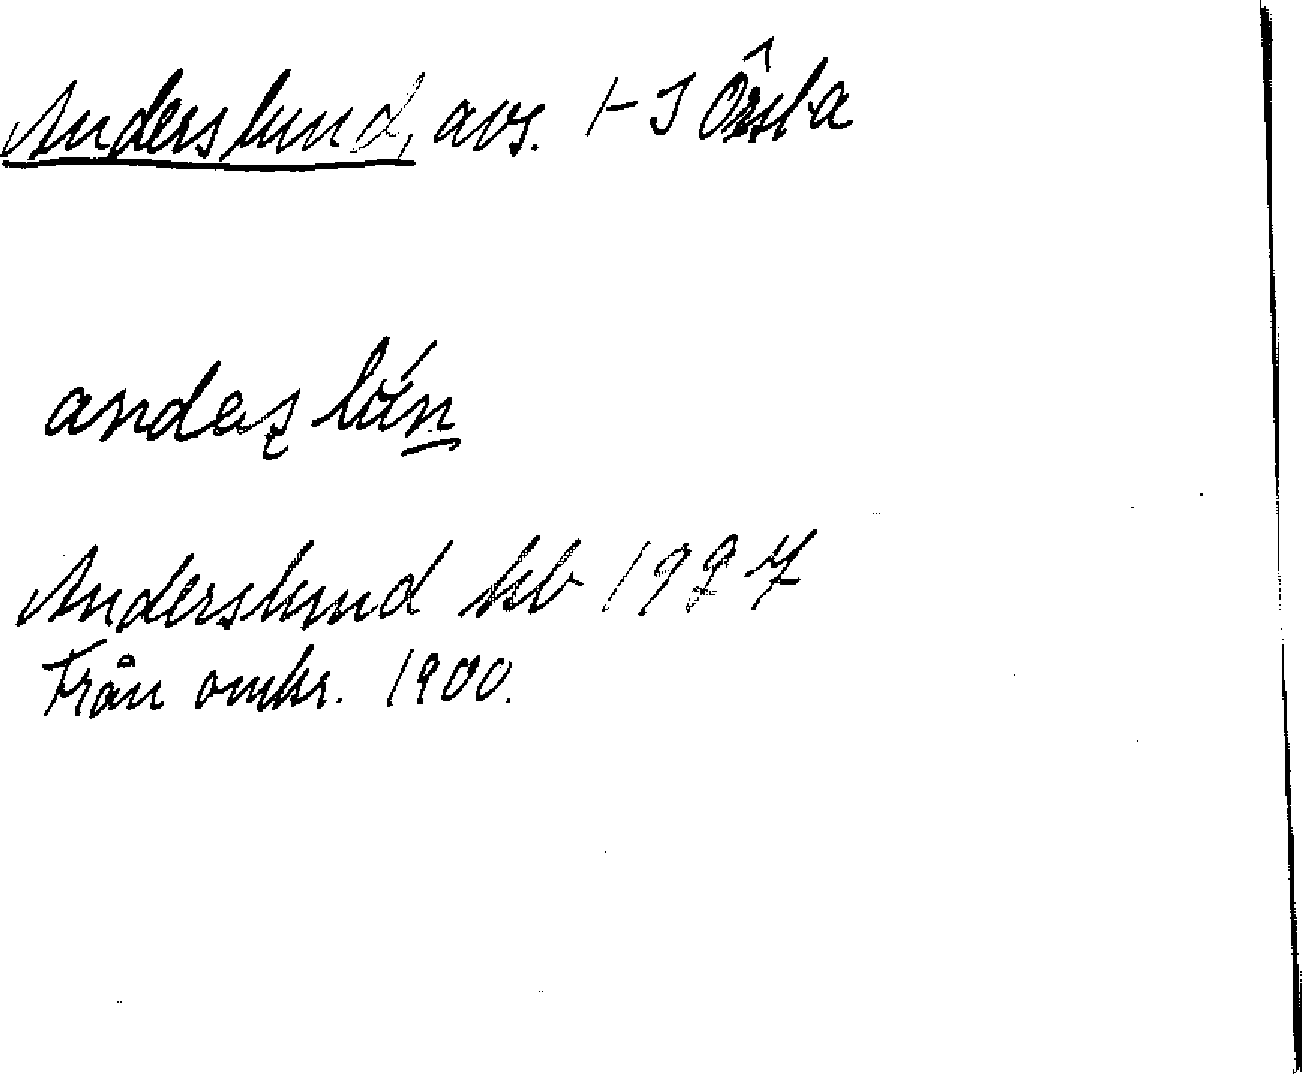 Anderslund, avs. t J Örsta
andaslún
Anderslund kb 1927
Från omkr. 1900.